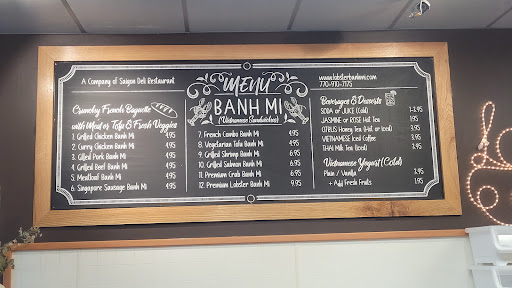 A Company of Saigon Deli Restaurant
Crunchy French Baguette
with Meat or Tofu & Fresh Veggies
1. Grilled Chicken Banh Mi 4.95
2. Curry Chicken Banh Mi 4.95
3. Grilled Pork Banh Mi 4.95
4. Grilled Beef Banh Mi 4.95
5. Meatloaf Banh Mi 4.95
6. Singapore Sausage Banh Mi 4.95
MENU
BANH MI
(Vietnamese Sandwiches)
7. French Combo Banh Mi 4.95
8. Vegetarian Tofu Banh Mi 4.95
9. Grilled Shrimp Banh Mi 6.95
10. Grilled Salmon Banh Mi 6.95
11. Premium Crab Banh Mi 6.95
12. Premium Lobster Banh Mi 9.95
www.lobsterbanhmi.com
770-910-7175
Beverages & Desserts
SODA or JUICE (Cold)
JASMINE or ROSE Hot Tea 1.95
CITRUS Honey Tea (Hot or Iced) 3.95
VIETNAMESE Iced Coffee 3.95
THAI Milk Tea (Iced) 3.95
Vietnamese Yogurt (Cold)
Plain / Vanilla
+ Add Fresh Fruits 3.95